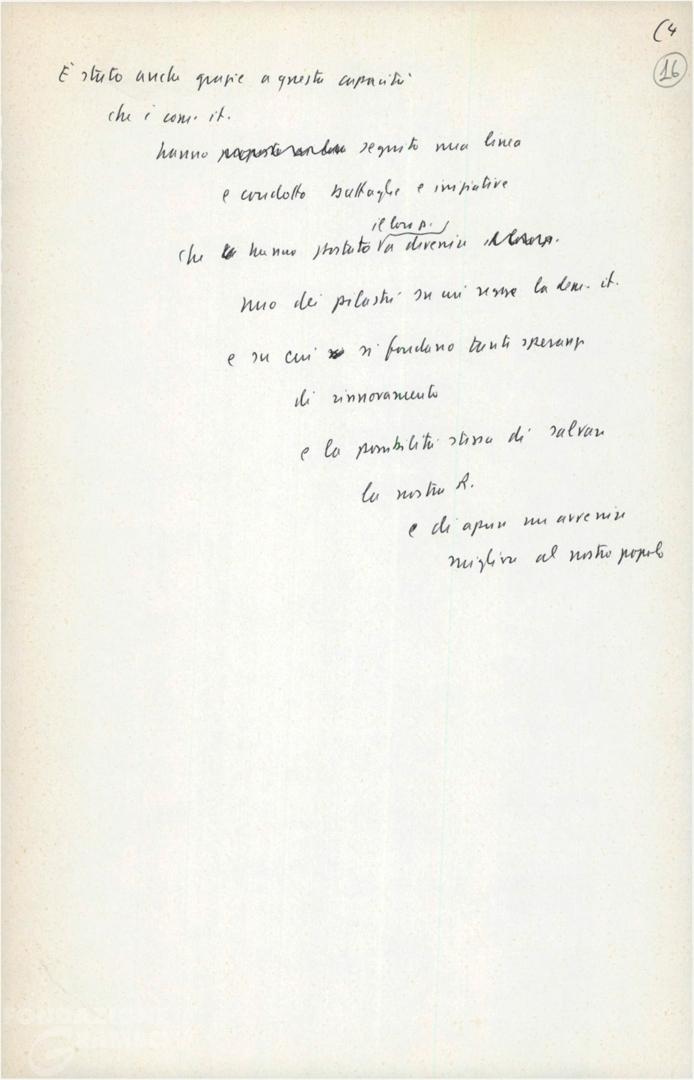 (4
16
È stato anche grazie a questa capacità
che i com. it.
hanno seguito una linea
e condotto battaglie e iniziative
il loro p.
che hanno portato a divenire
uno dei pilastri su cui regge la dem. it.
e su cui si fondano tante speranze
di rinnovamento
e la possibilità stessa di salvare
la nostra R.
e di aprire un avvenire
migliore al nostro popolo
FONDAZIONE
GRAMSCI